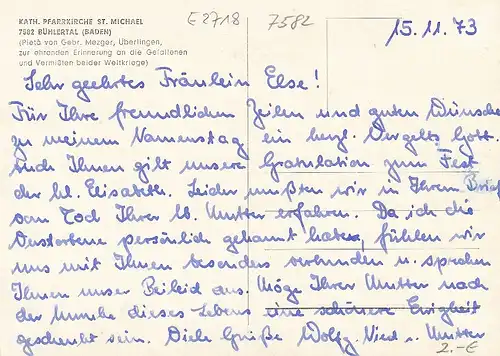 KATH. PFARRKIRCHE ST. MICHAEL
7582 BÜHLERTAL (BADEN)
(Pietà von Gebr. Mezger, Überlingen,
zur ehrenden Erinnerung an die Gefallenen
und Vermißten beider Weltkriege)
E2718
7582
15.11.73
Sehr geehrtes Fräulein Else!
Für Ihre freundlichen Zeilen und guten Wünsche
zu meinem Namenstag ein herzl. Vergelts Gott.
Auch Ihnen gilt unsere Gratulation zum Fest
der hl. Elisabeth. Leider mußten wir in Ihrem Brief
vom Tod Ihrer lb. Mutter erfahren. Da ich die
Verstorbene persönlich gekannt habe, fühlen wir
uns mit Ihnen besonders verbunden u. sprechen
Ihnen unser Beileid aus. Möge Ihrer Mutter nach
der Unruhe dieses Lebens eine schönere Ewigkeit
geschenkt sein. Viele Grüße Wolfg. u. Mutter
2.-€